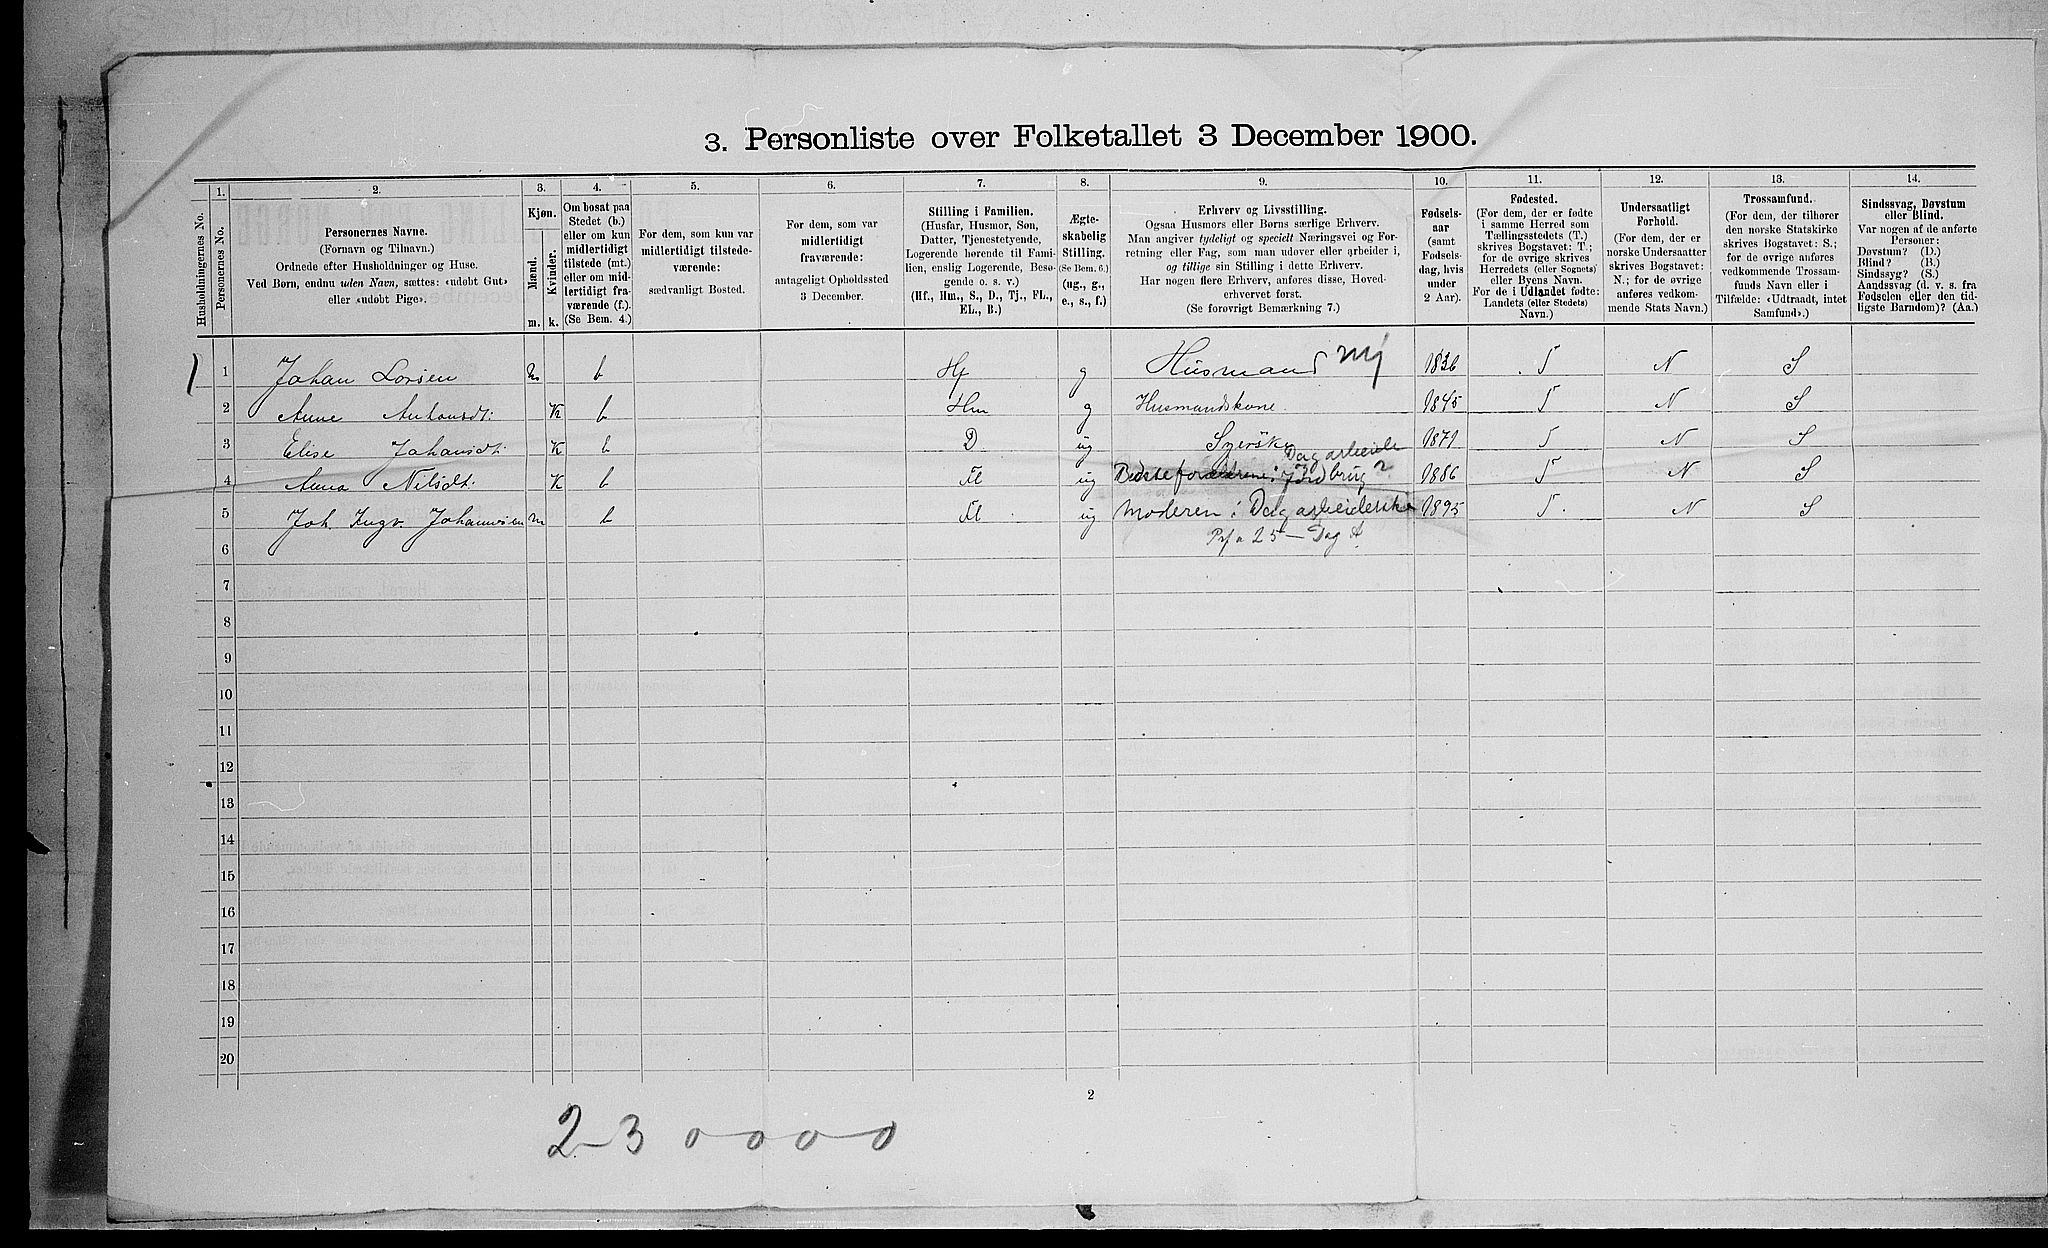 3. Personliste over Folketallet 3 December 1900.
1. 2. 3. 4. 5. 6. 7. 8. 9. 10. 11. 12. 13. 14.
Husholdningernes No.
Personernes No.
Personernes Navne.
(Fornavn og Tilnavn.)
Ordnede efter Husholdninger og Huse.
Ved Børn, endnu uden Navn, sættes: «udøbt Gut»
eller «udøbt Pige».
Kjøn.
Mænd.
Kvinder.
m. k.
Om bosat paa
Stedet (b.)
eller om kun
midlertidigt
tilstede (mt.)
eller om mid-
lertidigt fra-
værende (f.).
(Se Bem. 4.)
For dem, som kun var
midlertidigt tilstede-
værende:
sædvanligt Bosted.
For dem, som var
midlertidigt
fraværende:
antageligt Opholdssted
3 December.
Stilling i Familien.
(Husfar, Husmor, Søn,
Datter, Tjenestetyende,
Logerende hørende til Fami-
lien, enslig Logerende, Besø-
gende o. s. v.)
(Hf., Hm., S., D., Tj., FL.,
EL., B.)
Ægte-
skabelig
Stilling.
(Se Bem. 6.)
(ug., g.,
e., s., f.)
Erhverv og Livsstilling.
Ogsaa Husmors eller Børns særlige Erhverv.
Man angiver tydeligt og specielt Næringsvei og For-
retning eller Fag, som man udøver eller arbeider i,
og tillige sin Stilling i dette Erhverv.
Har nogen flere Erhverv, anføres disse, Hoved-
erhvervet først.
(Se forøvrigt Bemærkning 7.)
Fødsels-
aar
(samt
Fødsels-
dag, hvis
under
2 Aar).
Fødested.
(For dem, der er fødte
i samme Herred som
Tællingsstedets (T.)
skrives Bogstavet: T.;
for de øvrige skrives
Herredets (eller Sognets)
eller Byens Navn.
For de i Udlandet fødte:
Landets (eller Stedets)
Navn.)
Undersaatligt
Forhold.
(For dem, der er
norske Undersaatter
skrives Bogstavet:
N.; for de øvrige
anføres vedkom-
mende Stats Navn.)
Trossamfund.
(For dem, der tilhører
den norske Statskirke
skrives Bogstavet: S.;
for de øvrige anføres
vedkommende Trossam-
funds Navn eller i
Tilfælde: «Udtraadt, intet
Samfund».)
Sindssvag, Døvstum
eller Blind.
Var nogen af de anførte
Personer:
Døvstum? (D.)
Blind? (B.)
Sindssyg? (S.)
Aandssvag (d. v. s. fra
Fødselen eller den tid-
ligste Barndom)? (Aa.)
1 1 Johan Larsen m b Hf g Husmand mj 1836 T N S
2 Anne Antonsdt. K b Hm g Husmandskone. 1845 T N S
3 Elise Johansdt. K b D ug Syerske 1871 T N S
Dagarbeide
4 Anna Nilsdt. K b Fl ug Bedsteforældrene: Jordbrug? 1886 T N S
5 Joh. Ingv. Johannesen m b Fl. ug Moderen: Dagarbeiderske 1895 T. N S
25 — Dag A
6
7
8
9
10
11
12
13
14
15
16
17
18
19
20
2
2-3 0 0 0 0